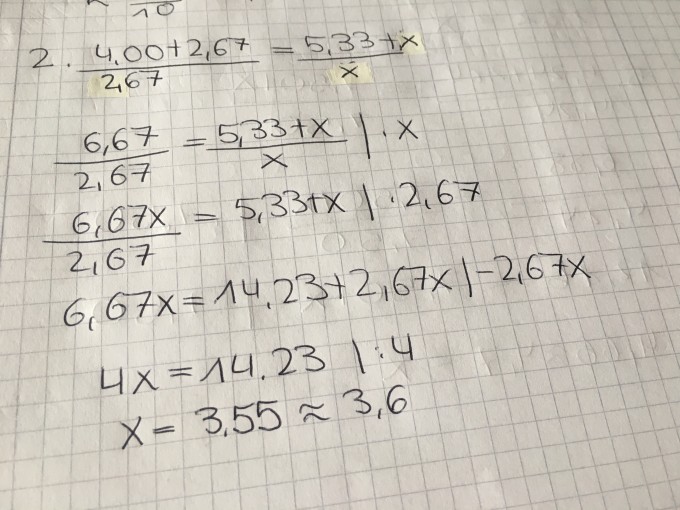 10
2. (4,00+2,67)/2,67 = (5,33+x)/x
6,67/2,67 = (5,33+x)/x | · x
6,67x/2,67 = 5,33+x | · 2,67
6,67x = 14,23+2,67x | -2,67x
4x = 14.23 | :4
x = 3,55 ≈ 3,6